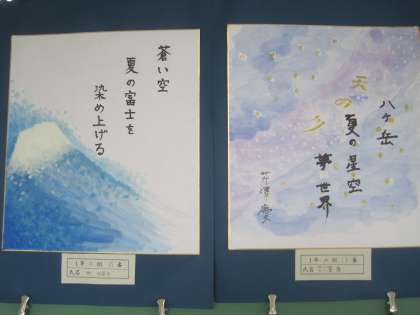 蒼い空
夏の富士を
染め上げる
八ヶ岳
天の
夏の星空
夢世界
芹澤
1年 組 番
氏名
1年 組 番
氏名